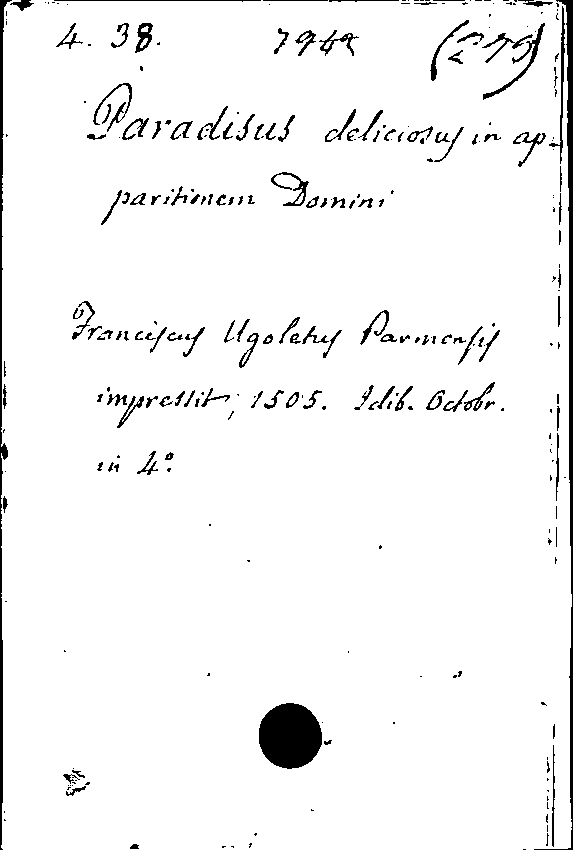 4. 38. 794a (275)
Paradisus deliciosus in ap-
paritionem Domini
Franciscus Ugoletus Parmensis
impressit, 1505. Idib. Octobr.
in 4°.